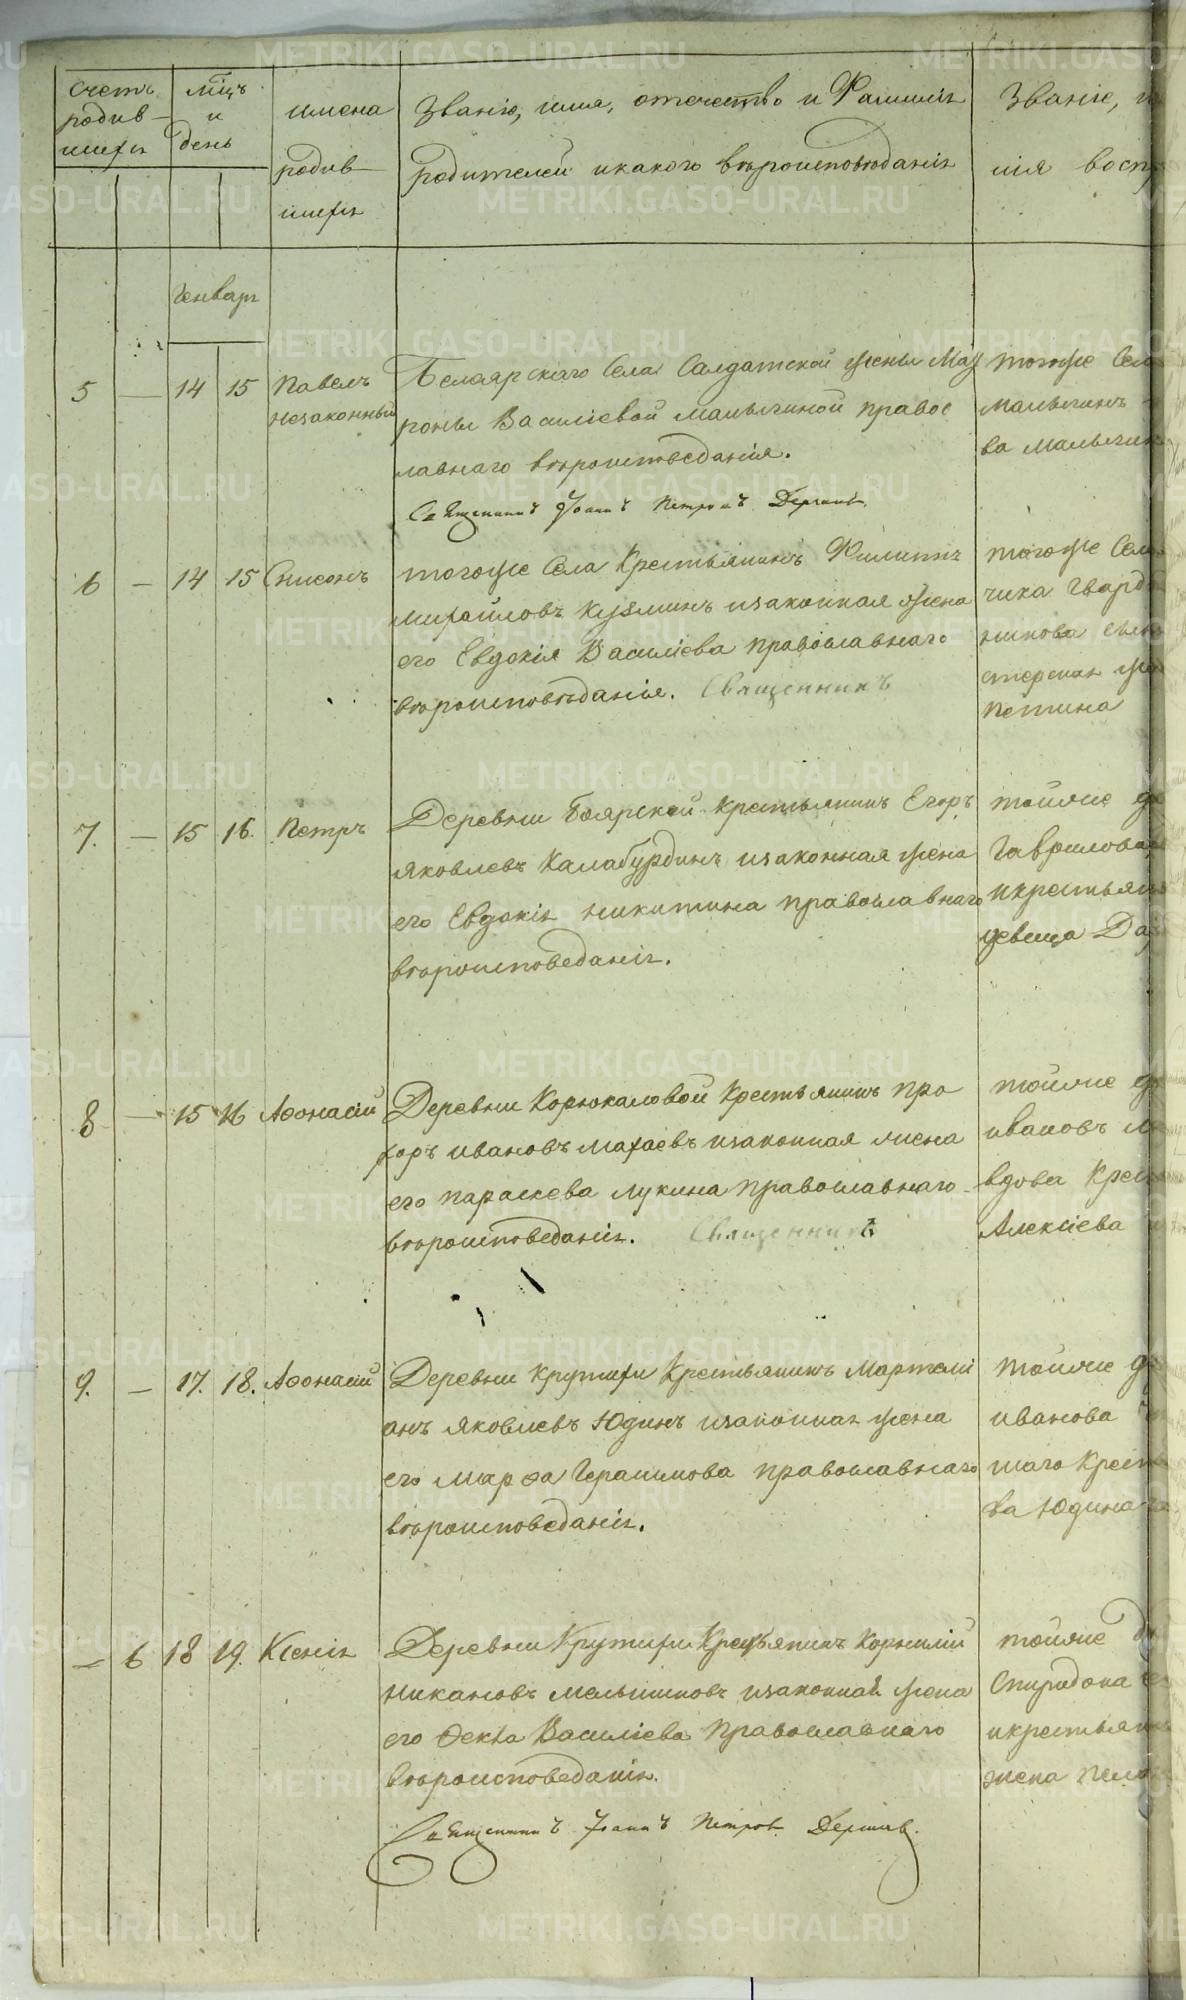 METRIKI.GASO-URAL.RU
счетъ
родив
шихся
мѣцъ
и
день
имена
родив
шихся
Званіе, имя, отечество и Фамилія
родителей и какого вѣроисповѣданія
Званіе,
мія
Генварь
5 — 14 15 Павелъ
незаконный
Белоярскаго Села Салдатской жены Мат
роны Василіевой Мальгиной правос
лавнаго вѣроисповеданія.
тогоже Села
Мальгинъ
ва Мальгин
Священникъ Іоаннъ Петровъ
6 — 14 15 Симеонъ
тогоже Села Крестьянинъ Филиппъ
Михайловъ Кузминъ изаконная жена
его Евдокія Василіева православнаго
вѣроисповѣданія. Священникъ
тогоже Села
чика
7. — 15 16. Петръ
Деревни Боярской крестьянинъ Егоръ
Яковлевъ Калабурдинъ изаконная жена
его Евдокія никитина православнаго
вѣроисповеданія.
тойже де
Гаврилова
икрестьян
девица Да
8 — 15 16 Афонасій
Деревни Корюкаловой Крестьянинъ Про
хоръ ивановъ Махаевъ изаконная жена
его параскева лукина православнаго
вѣроисповеданія. Священникъ
тойже де
ивановъ
вдова Крес
Алексіева
9. — 17. 18. Афонасій
Деревни Крутихи Крестьянинъ Мартемі
анъ яковлевъ Юдинъ изаконная жена
его Марфа Герасимова православнаго
вѣроисповеданія.
тойже де
иванова
шаго Крест
ва Юдина
— 6 18 19. Ксенія
Деревни Крутихи Крестьянинъ Корнилій
никановъ Мельниковъ изаконная жена
его Фекла Василіева Православнаго
вѣроисповеданія.
тойже де
Спиридона
икрестьян
жена
Священникъ Іоаннъ Петровъ